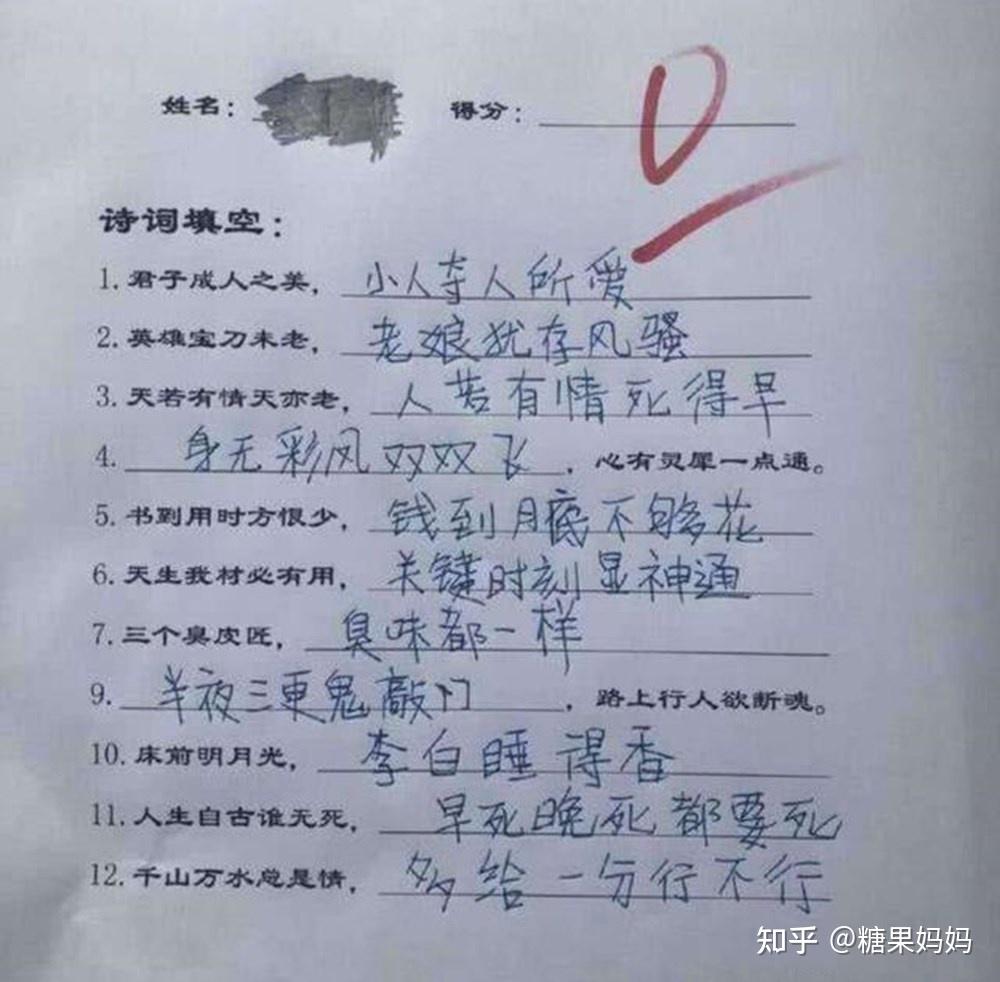 姓名： 得分： 0
诗词填空：
1. 君子成人之美，小人夺人所爱
2. 英雄宝刀未老，老娘犹存风骚
3. 天若有情天亦老，人若有情死得早
4. 身无彩风双双飞，心有灵犀一点通。
5. 书到用时方恨少，钱到月底不够花
6. 天生我材必有用，关键时刻显神通
7. 三个臭皮匠，臭味都一样
9. 半夜三更鬼敲门，路上行人欲断魂。
10. 床前明月光，李白睡得香
11. 人生自古谁无死，早死晚死都要死
12. 千山万水总是情，多给一分行不行
知乎 @糖果妈妈